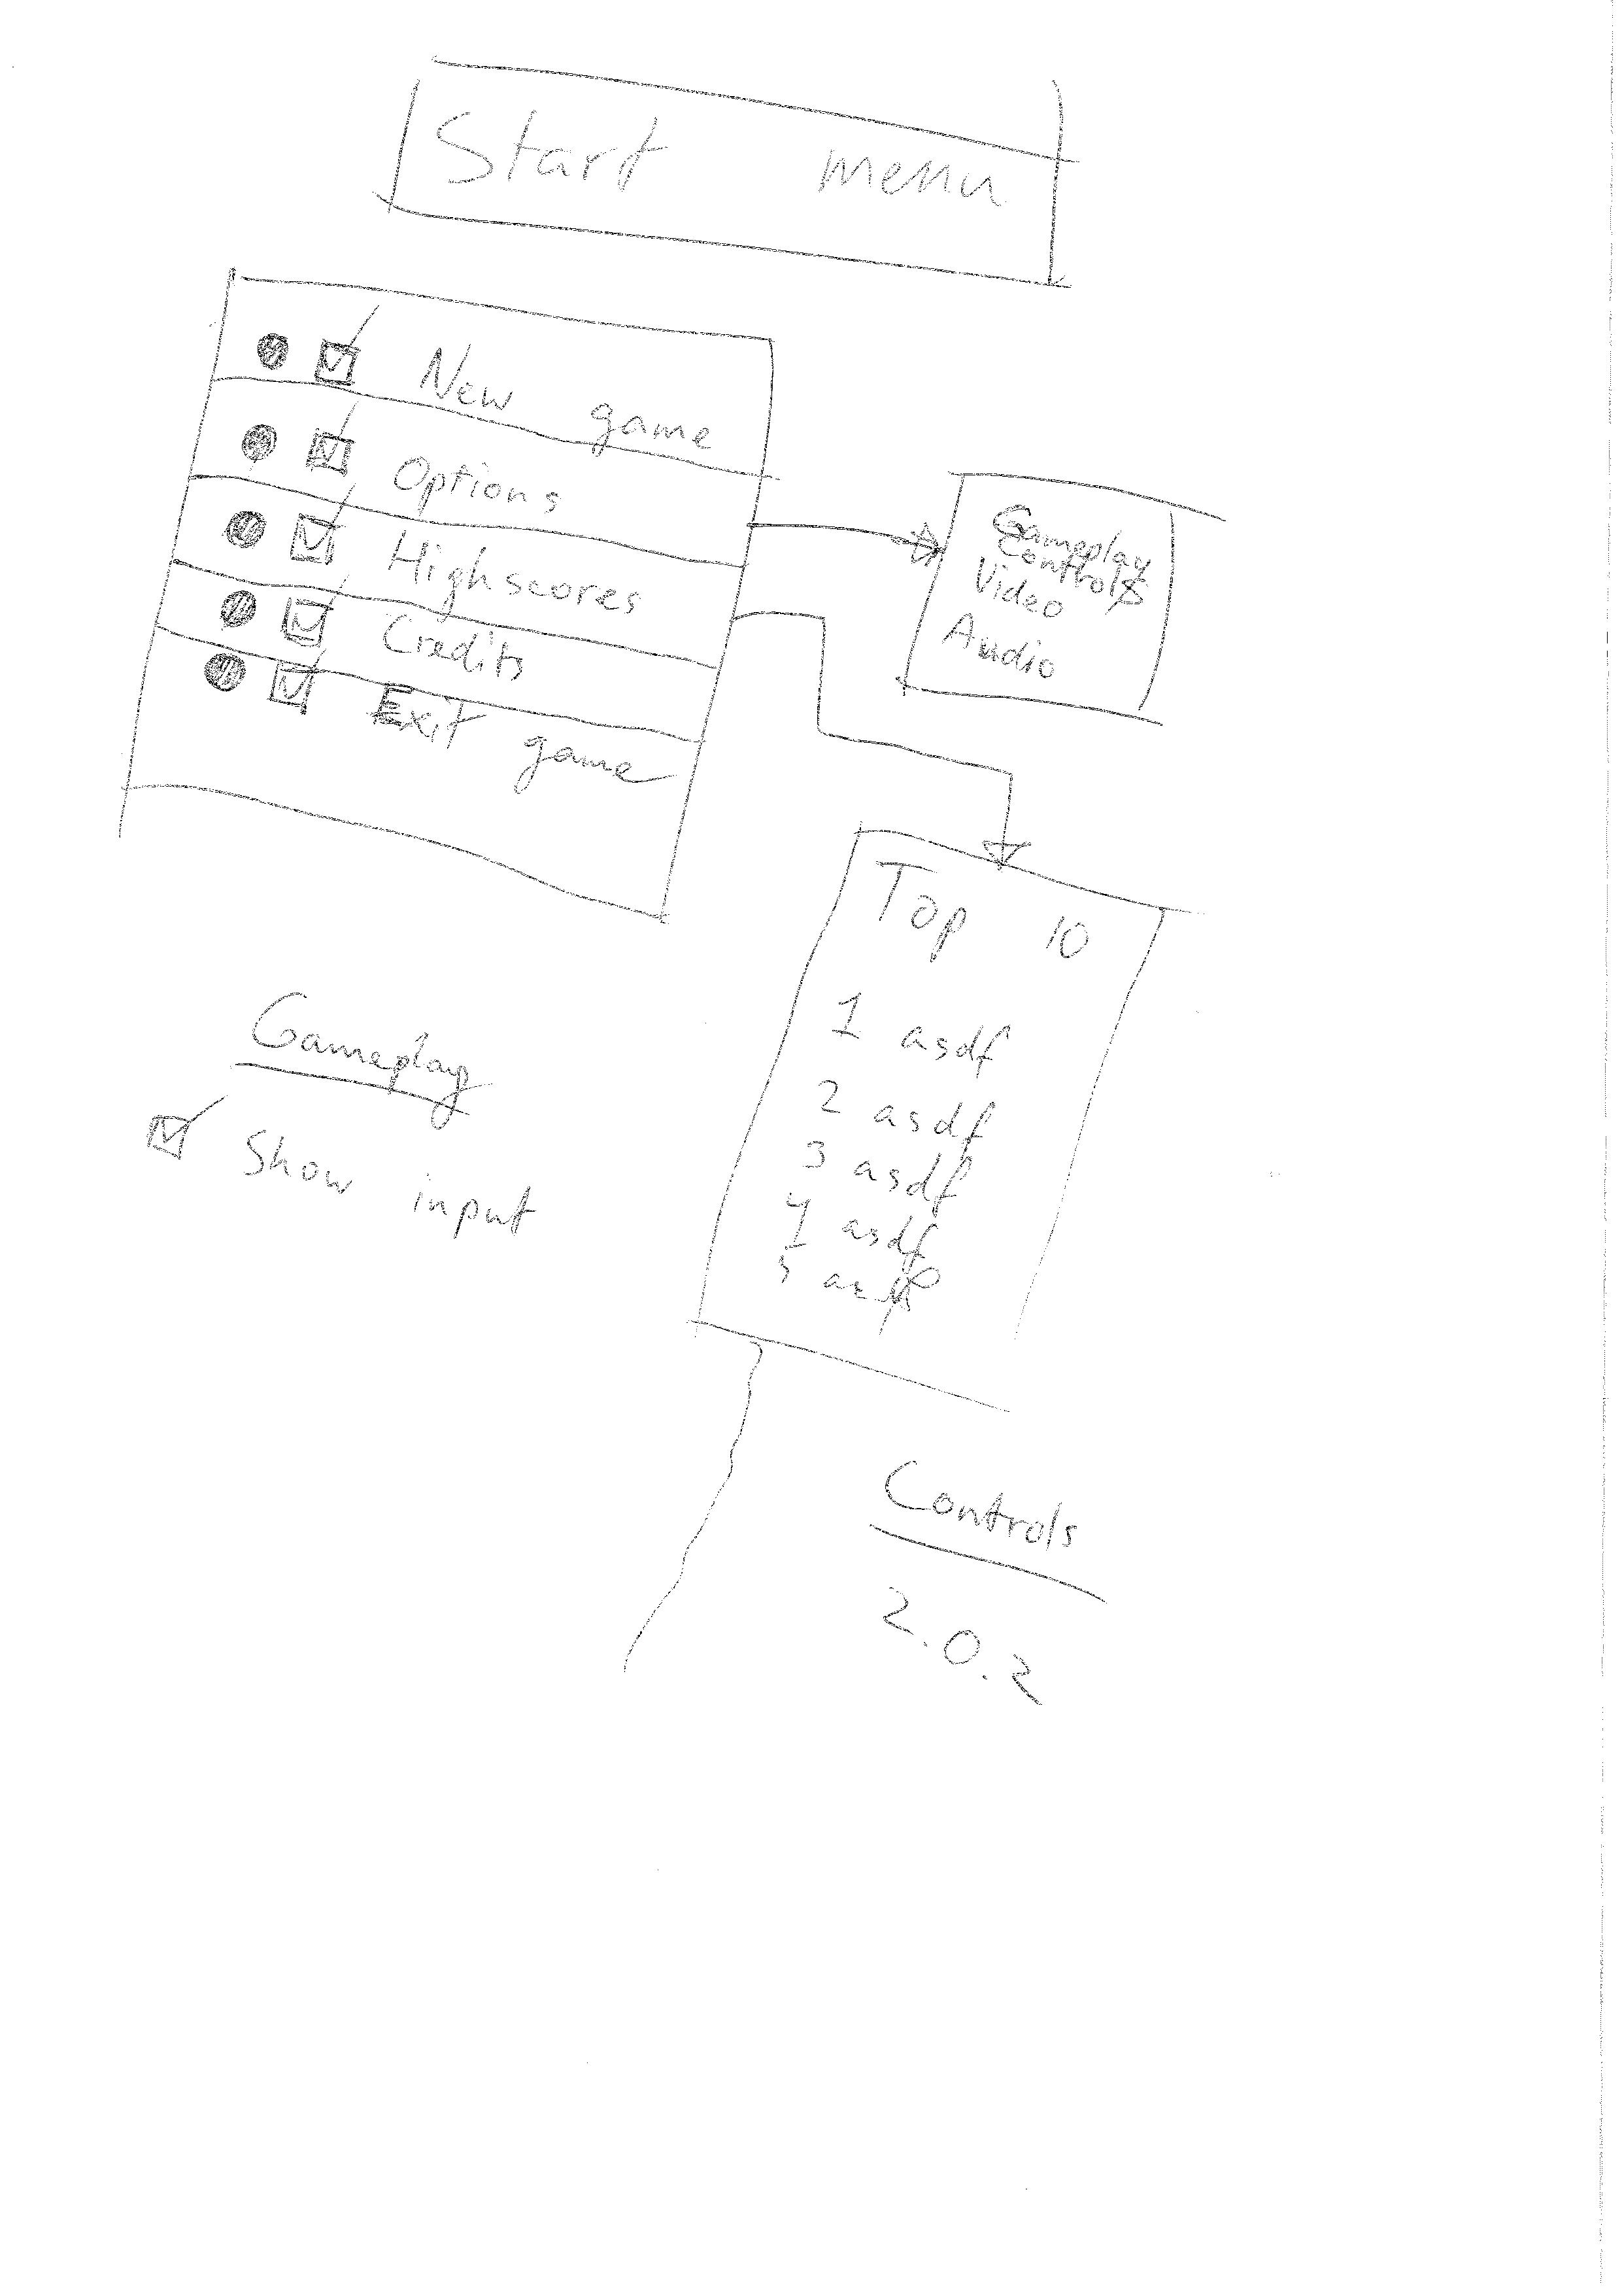 Start menu
New game
Options
Highscores
Credits
Exit game
Gameplay
Controls
Video
Audio
Top 10
1 asdf
2 asdf
3 asdf
4 asdf
5 asdf
Gameplay
Show input
Controls
2.0.2